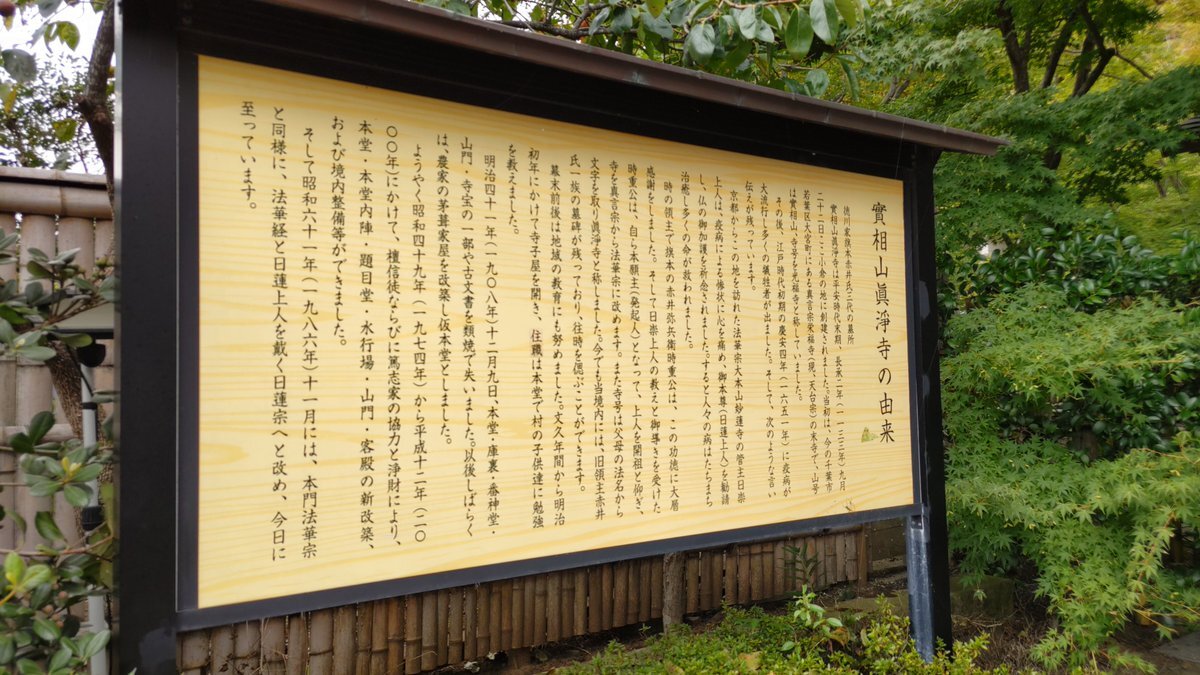 實相山眞淨寺の由来
徳川家旗本赤井氏三代の墓所
實相山眞淨寺は平安時代末期、長承二年(一一三三年)九月
二十二日ここ小倉の地に創建されました。当初は、今の千葉市
若葉区大宮町にある真言宗栄福寺(現、天台宗)の末寺で、山号
は實相山、寺号を光福寺と称していました。
その後、江戸時代初期の慶安四年(一六五一年)に疫病が
大流行し多くの犠牲者が出ました。そして、次のような言い
伝えが残っています。
京都からこの地を訪れた法華宗大本山妙蓮寺の管主日崇
上人は、疫病による惨状に心を痛め、御本尊(日蓮上人)を勧請
し、仏の御加護を祈念されました。すると人々の病はたちまち
治癒し多くの命が救われました。
時の領主で旗本の赤井弥兵衛時重公は、この功徳に大層
感謝をしました。そして日崇上人の教えと御導きを受けた
時重公は、自ら本願主(発起人)となって、上人を開祖と仰ぎ、
寺を真言宗から法華宗に改めます。また寺号は父母の法名から
文字を取り眞淨寺と称しました。今でも当境内には、旧領主赤井
氏一族の墓碑が残っており、往時を偲ぶことができます。
幕末前後は地域の教育にも努めました。文久年間から明治
初年にかけて寺子屋を開き、住職は本堂で村の子供達に勉強
を教えました。
明治四十一年(一九〇八年)十二月九日、本堂・庫裏・番神堂・
山門・寺宝の一部や古文書を類焼で失いました。以後しばらく
は、農家の茅葺家屋を改築し仮本堂としました。
ようやく昭和四十九年(一九七四年)から平成十二年(二〇
〇〇年)にかけて、檀信徒ならびに篤志家の協力と浄財により、
本堂・本堂内陣、題目堂・水行場・山門・客殿の新改築、
および境内整備等ができました。
そして昭和六十一年(一九八六年)十一月には、本門法華宗
と同様に、法華経と日蓮上人を戴く日蓮宗へと改め、今日に
至っています。